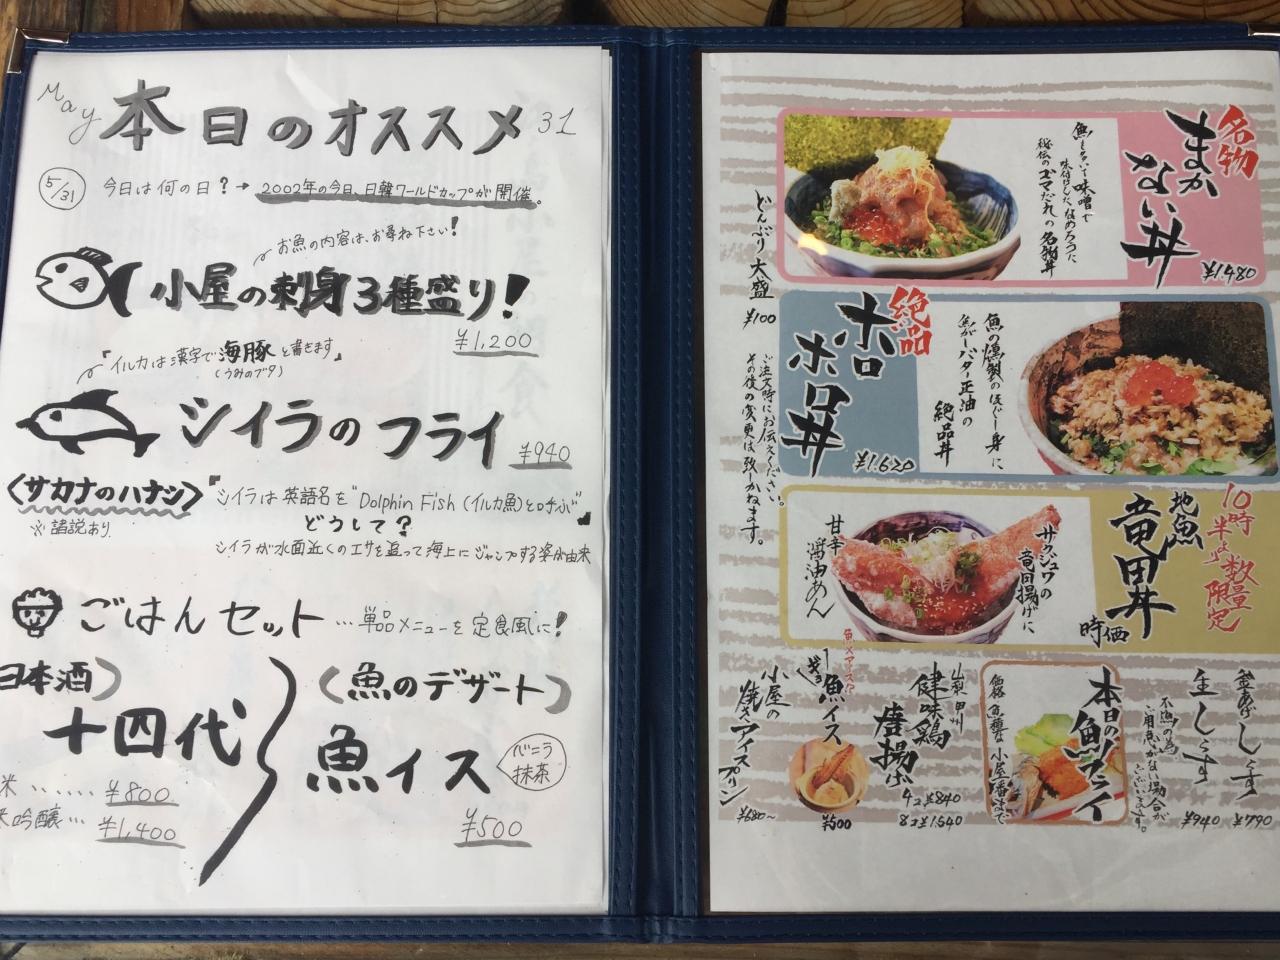 May 本日のオススメ 31
5/31 今日は何の日?→ 2002年の今日、日韓ワールドカップが開催。
お魚の内容は、お尋ね下さい!
小屋の刺身3種盛り!
¥1,200
『イルカは漢字で海豚と書きます』
(うみのブタ)
シイラのフライ ¥940
〈サカナのハナシ〉
※諸説あり
"シイラは英語名を"Dolphin Fish (イルカ魚)と呼ぶ"
どうして?
シイラが水面近くのエサを追って海上にジャンプする姿が由来
ごはんセット …単品メニューを定食風に!
日本酒)
十四代
米 ‥‥‥ ¥800
米吟醸… ¥1,400
(魚のデザート)
魚イス
バニラ
抹茶
¥500
名物
まかない丼
¥1,480
魚をたいて味噌で
味付けした、なめろうに
秘伝のゴマだれの名物丼
どんぶり大盛
¥100
ご注文時にお伝えください。
その後の変更は致しかねます。
絶品
ホロホロ丼
¥1,620
魚の燻製のほぐし身に
魚がバター正油の
絶品丼
10時半より数量限定
地魚
竜田丼
時価
サクジュワの
竜田揚げに
甘辛
醤油あん
釜あげしらす
¥790
生しらす
¥940
不漁の為、
ご用意がない場合が
ございます。
本日の魚フライ
価格、魚種は小屋番まで
山梨甲州
健味鶏
唐揚げ
4コ¥840
8コ¥1,540
魚×アイス!?
魚イス
¥500
小屋の
焼きアイスプリン
¥680〜